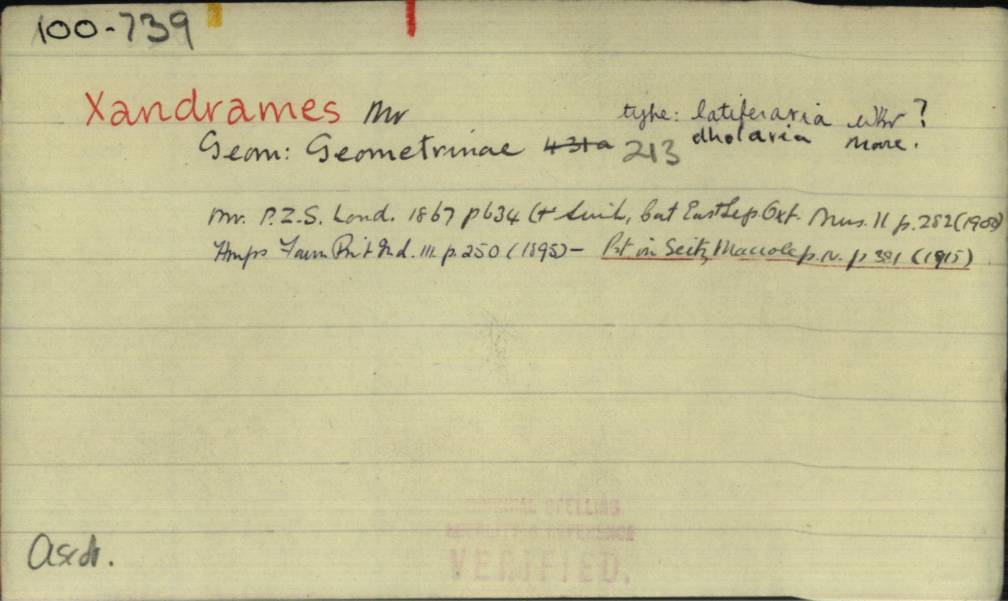 100-739
Xandrames Mr type: latiferaria Wkr ?
Geom: Geometrinae 431a 213 dholaria Moore.
Mr. P.Z.S. Lond. 1867 p 634 (+ Swinh, Cat East Lep. Oxf. Mus. II p. 282 (1900)
Hmps Faun Brit Ind. III p. 250 (1895) - Prt in Seitz, Macrolep. IV. p 381 (1915)
ORIGINAL SPELLING
REFERENCE
VERIFIED.
Ascd.